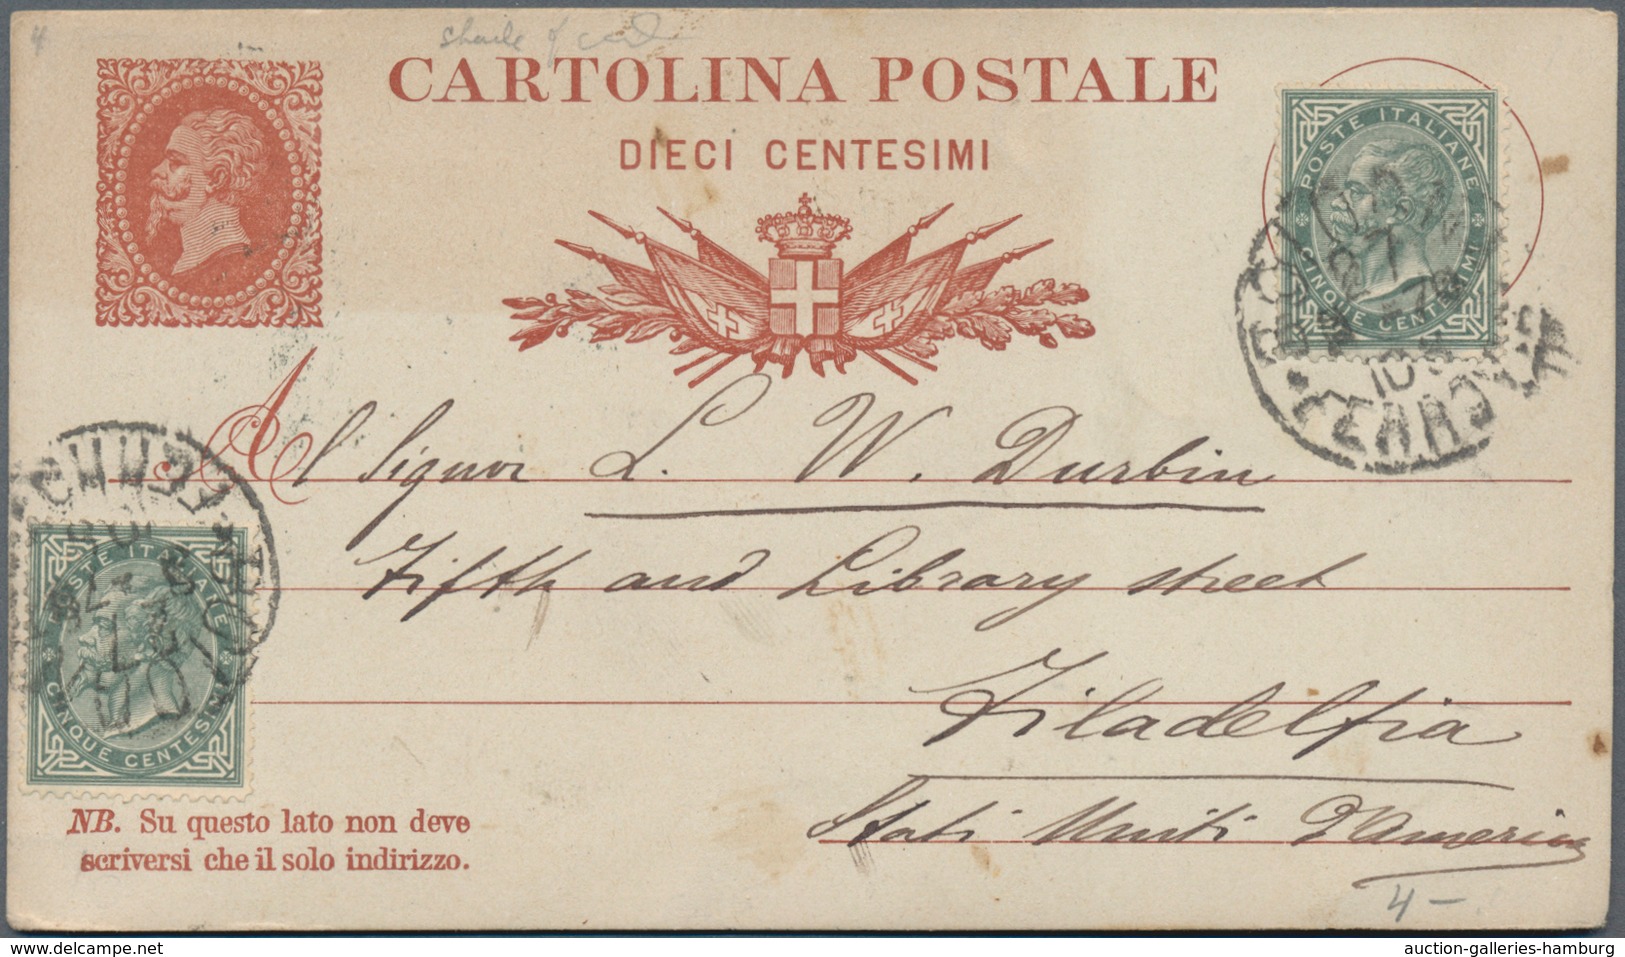 4
CARTOLINA POSTALE
DIECI CENTESIMI
POSTE ITALIANE
CINQUE CENTESIMI
27
10 S
FERROVIA
Al Signor L. W. Durbin
Fifth and Library street
Filadelfia
Stati Uniti d'America
POSTE ITALIANE
CINQUE CENTESIMI
NB. Su questo lato non deve
scriversi che il solo indirizzo.
4 -
www.delcampe.net
auction-galleries-hamburg